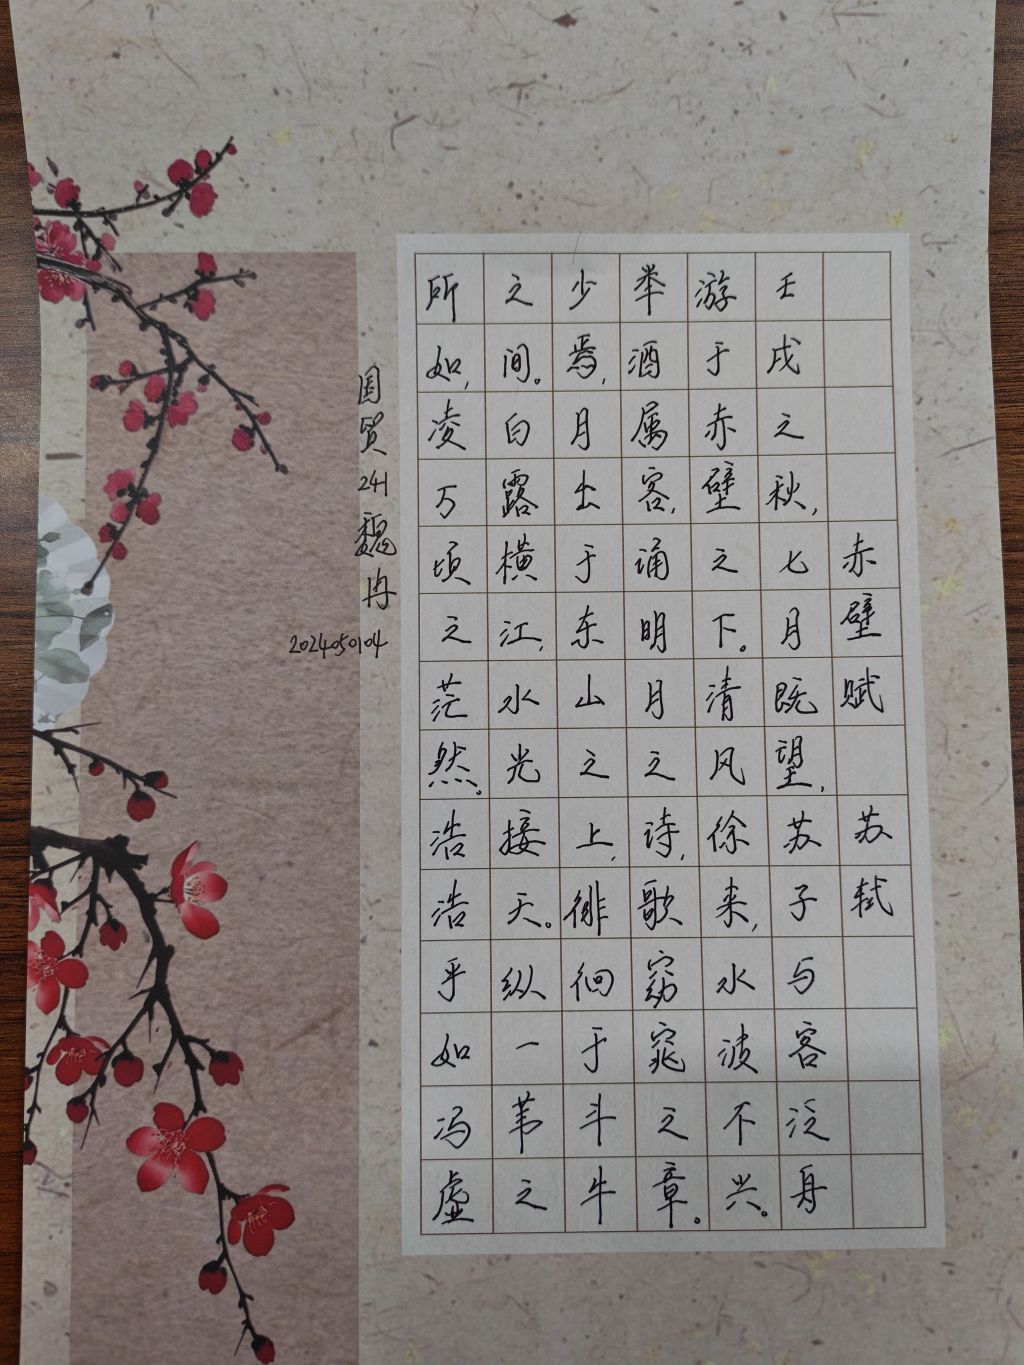 赤壁赋 苏轼
壬戌之秋,七月既望,苏子与客泛舟
游于赤壁之下。清风徐来,水波不兴。
举酒属客,诵明月之诗,歌窈窕之章。
少焉,月出于东山之上,徘徊于斗牛
之间。白露横江,水光接天。纵一苇之
所如,凌万顷之茫然。浩浩乎如冯虚
国贸241魏冉
2024050104